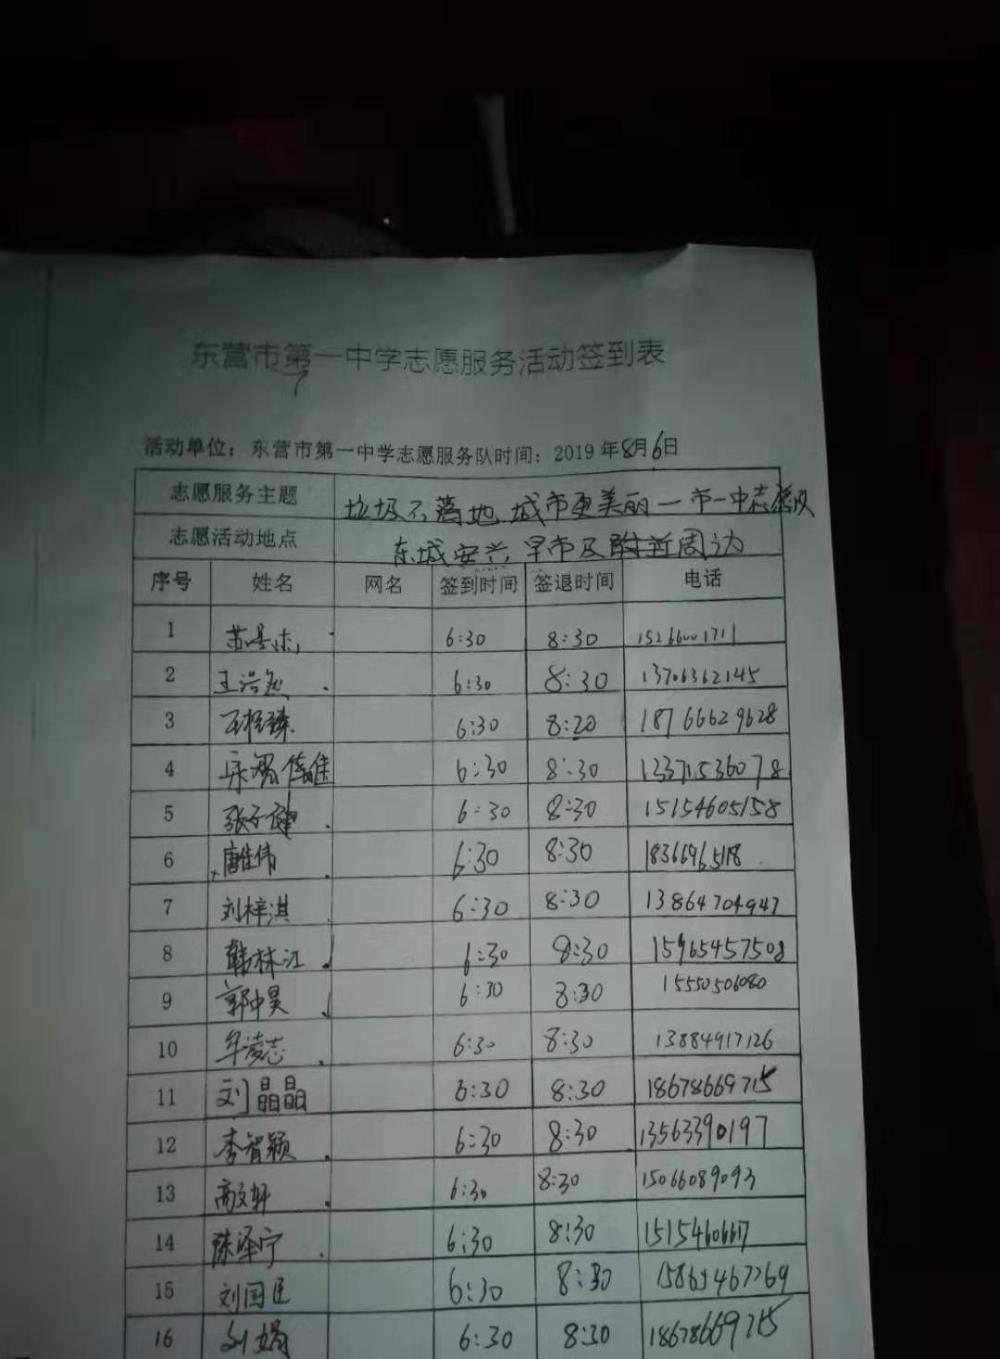 东营市第一中学志愿服务活动签到表
活动单位：东营市第一中学志愿服务队时间：2019年8月6日
志愿服务主题 垃圾不落地 城市更美丽一市一中志愿队
志愿活动地点 东城安兴早市及附近周边
序号 姓名 网名 签到时间 签退时间 电话
1 6:30 8:30 15266001711
2 王浩 6:30 8:30 13706362145
3 6:30 8:20 18766629628
4 6:30 8:30 13371536078
5 张子健 6:30 8:30 15154605158
6 唐佳伟 6:30 8:30 18366965118
7 刘梓淇 6:30 8:30 13864704947
8 韩林江 6:30 8:30 15965457508
9 郭中昊 6:30 8:30 15550506080
10 牟凌志 6:30 8:30 13884917126
11 刘晶晶 6:30 8:30 18678669715
12 李智颖 6:30 8:30 13563390197
13 高文轩 6:30 8:30 15066089093
14 陈泽宁 6:30 8:30 15154606617
15 刘国臣 6:30 8:30 15865467769
16 刘娟 6:30 8:30 18678669715